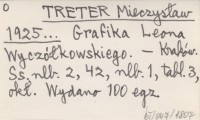 O TRETER Mieczysław
1925... Grafika Leona
Wyczółkowskiego. — Kraków.
Ss. nlb. 2, 42, nlb. 1, tabl. 3,
okł. Wydano 100 egz.